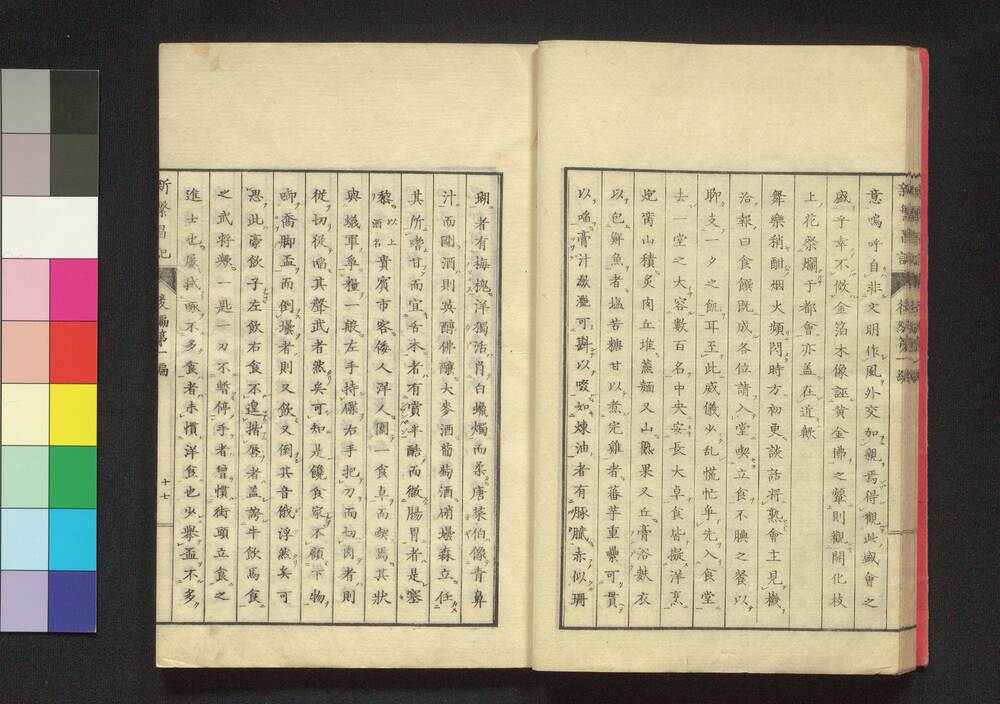 意嗚呼自非文明作風外交如親焉得觀此盛會之
盛乎幸不倣金湢木像誣黃金佛之顰則觀開化枝
上花祭爛于都會亦蓋在近歟
舞樂稍酣烟火頻閃時方初更談話析熟會主見機
洽報曰食饌既成各位請入堂喫立食不腆之餐以
聊支一夕之飢耳至此威儀少乱慌忙爭先入食堂
去一堂之大容數百名中央安長大卓食皆擬洋烹
炮臠山積炙肉丘堆蒸麵又山熟果又丘膏浴麩衣
以包鮮魚者塩苦糖甘以煮完雞者蕃芋重疊可貫
以 膏汁 可斟以啜如煉油者有豚膩赤似珊
瑚者有梅 洋獨活肖白蠟燭而柔唐菜伯像青鼻
汁而剛酒則英醇佛釀大麥酒葡萄酒硝壜森立任
其所嗜甘而宜舌本者有 辛酷而徹腸胃者是塞
黎以上酒名貴賓市客倭人洋人圍一食卓而喫焉其狀
與蟻軍爭糧一般左手持 右手把刀而切肉者則
從切從 其聲武者然矣可知是饞食家不顧下物
啣喬脚盃而倒壜者則又飲又倒其音俄浮然矣可
思此豪飲子左飲右食不遑揩唇者蓋蒭牛飲馬食
之武將歟一匙一刀不暫停手者曾慣街頭立食之
進士也屢拭啄不多食者未慣洋食也少舉盃不多
新繁昌記 後編第一編 十七